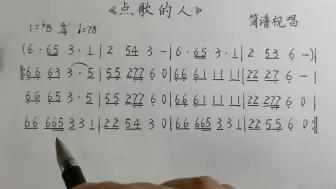 《点歌的人》
简谱视唱
1=♭B 4/4 ♩=78
(6·65 3·1|2 54 3-|6·65 3·1|2 53 6-)|
‖:66 63 3·5|55 277 60|66 63 3·5|55 277 60|
66 63 3·5|55 277 60|66 611 111|22 277 60|
66 665 331|22 54 30|66 665 331|22 55 60:‖